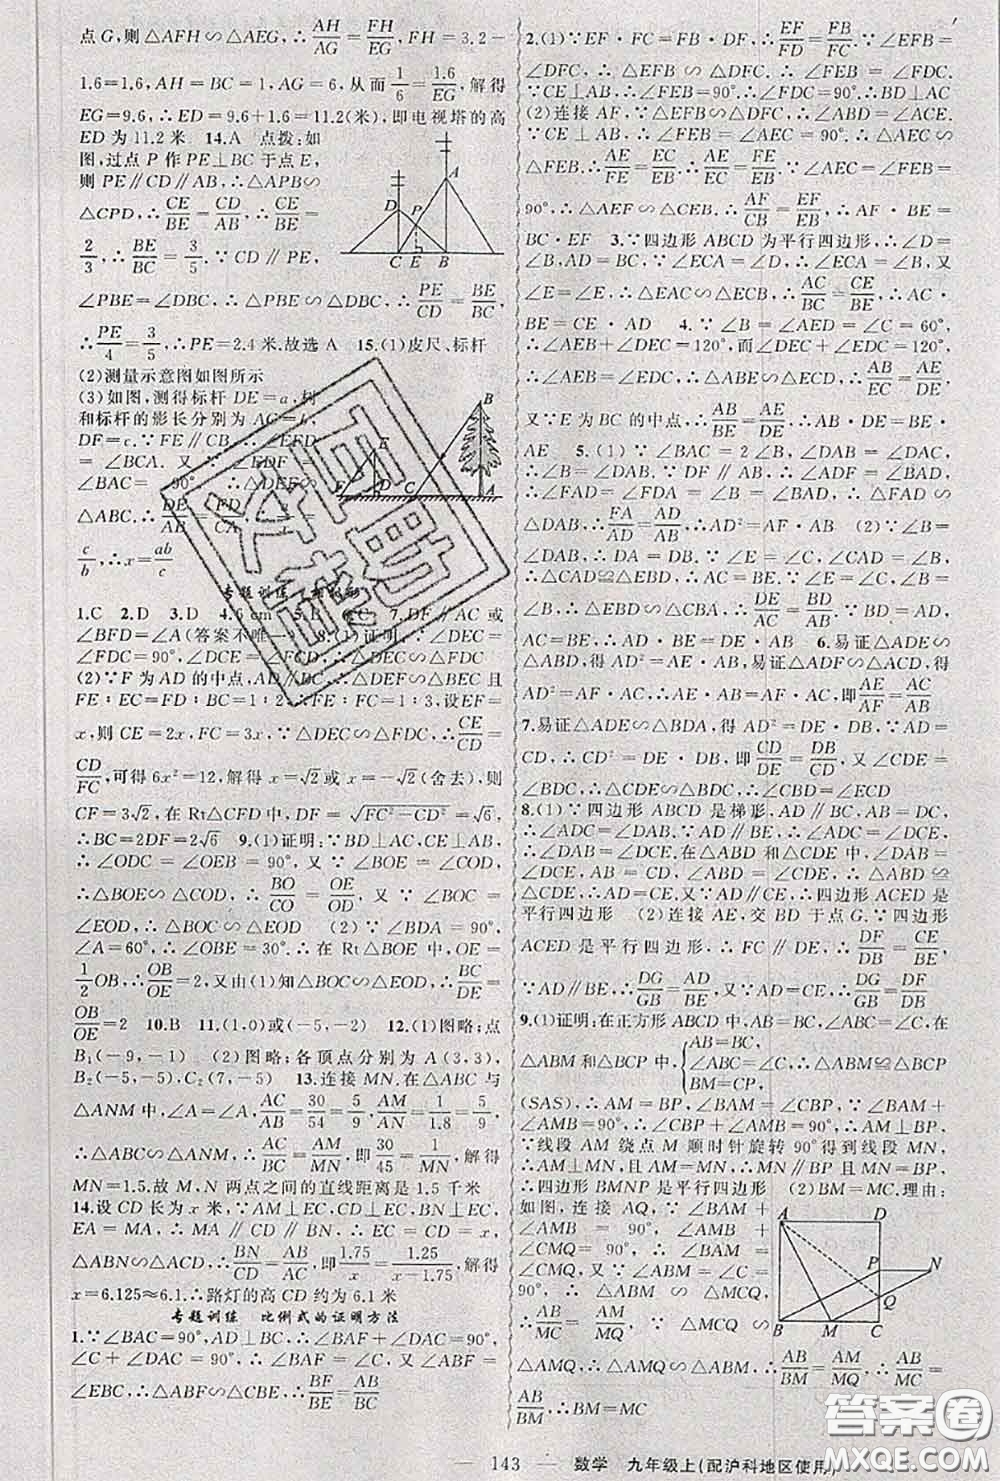 点G,则△AFH∽△AEG,∴AH/AG=FH/EG,FH=3.2−
1.6=1.6,AH=BC=1,AG=6,从而1/6=1.6/EG,解得
EG=9.6,∴ED=9.6+1.6=11.2(米),即电视塔的高
ED为11.2米 14.A 点拨:如
图,过点P作PE⊥BC于点E,
则PE∥CD∥AB,∴△APB∽
△CPD,∴CE/BE=CD/AB,∴CE/BE=
2/3,∴BE/BC=3/5∵CD∥PE,
∠PBE=∠DBC,∴△PBE∽△DBC,∴PE/CD=BE/BC,
∴PE/4=3/5,∴PE=2.4米.故选A 15.(1)皮尺、标杆
(2)测量示意图如图所示
(3)如图,测得标杆DE=a,树
和标杆的影长分别为AC=b,
DF=c.∵FE∥CB,∴∠EFD
=∠BCA.又∵
∠BAC=90°,∴△DEF∽
△ABC.∴DE/AB=FD/CA
c/b,∴x=ab/c
专题训练
1.C 2.D 3.D 4.6cm 5.D 7.DF∥AC或
∠BFD=∠A(答案不唯一) 8.(1)证明:∵∠DEC=
∠FDC=90°,∠DCE=∠FCD,∴△DEC∽△FDC
(2)∵F为AD的中点,AD∥BC,∴△DEF∽△BEC且
FE∶EC=FD∶BC=1∶2∴FE∶FC=1∶3,设EF=
x,则CE=2x,FC=3x,∵△DEC∽△FDC,∴CE/CD=
CD/FC,可得6x²=12,解得x=√2或x=−√2(舍去),则
CF=3√2,在Rt△CFD中,DF=√(FC²−CD²)=√6,
∴BC=2DF=2√6 9.(1)证明:∵BD⊥AC,CE⊥AB,
∴∠ODC=∠OEB=90°,又∵∠BOE=∠COD,
∴△BOE∽△COD,∴BO/CO=OE/OD,又∵∠BOC=
∠EOD,∴△BOC∽△EOD (2)∵∠BDA=90°,
∠A=60°,∴∠OBE=30°∴在Rt△BOE中,OE=
1/2OB,∴OB/OE=2,又由(1)知△BOC∽△EOD,∴BC/DE=
OB/OE=2 10.B 11.(1,0)或(−5,−2) 12.(1)图略;点
B₁(−9,−1) (2)图略;各顶点分别为A(3,3),
B₂(−5,−5),C(7,−5) 13.连接MN.在△ABC与
△ANM中,∠A=∠A,AC/AB=30/54=5/9,AM/AN=1/1.8=5/9,
∴△ABC∽△ANM,∴AC/AM=BC/MN,即30/45=1/MN,解得
MN=1.5.故M、N两点之间的直线距离是1.5千米
14.设CD长为x米,∵AM⊥EC,CD⊥EC,BN⊥EC,
EA=MA,∴MA∥CD∥BN,∴EC=CD=x,
△ABN∽△ACD∴BN/CD=AB/AC,即1.75/x=1.25/(x−1.75),解得
x=6.125≈6.1.∴路灯的高CD约为6.1米
专题训练 比例式的证明方法
1.∵∠BAC=90°,AD⊥BC,∴∠BAF+∠DAC=90°,
∠C+∠DAC=90°,∴∠BAF=∠C又∵∠ABF=
∠EBC,∴△ABF∽△CBE,∴BF/BE=AB/BC
2.(1)∵EF·FC=FB·DF,∴EF/FD=FB/FC.∵∠EFB=
∠DFC,∴△EFB∽△DFC,∴∠FEB=∠FDC.
∵CE⊥AB,∴∠FEB=90°∴∠FDC=90°.∴BD⊥AC
(2)连接AF,∵△EFB∽△DFC,∴∠ABD=∠ACE.
∵CE⊥AB,∴∠FEB=∠AEC=90°.∴△AEC∽
△FEB.∴AE/FE=EC/EB.∴AE/EC=FE/EB.∵∠AEC=∠FEB=
90°,∴△AEF∽△CEB.∴AF/CB=EF/EB,∴AF·BE=
BC·EF 3.∵四边形ABCD为平行四边形,∴∠D=
∠B,AD=BC,∵∠ECA=∠D,∴∠ECA=∠B,又
∠E=∠E,∴△EAC∽△ECB,∴AC/BC=CE/BE,∴AC·
BE=CE·AD 4.∵∠B=∠AED=∠C=60°,
∴∠AEB+∠DEC=120°,而∠DEC+∠EDC=120°,
∴∠AEB=∠EDC,∴△ABE∽△ECD,∴AB/EC=AE/DE,
又∵E为BC的中点,∴AB/BE=AE/DE,∴AB·DE=BE·
AE 5.(1)∵∠BAC=2∠B,AD平分∠BAC,
∴∠B=∠DAB=∠DAC.∵DF∥AB,∴∠ADF=∠BAD,
∴∠ADF=∠DAF=∠B=∠BAD,∴△FAD∽
△DAB,∴FA/DA=AD/AB,∴AD²=AF·AB (2)∵∠B=
∠DAB,∴DA=DB.∵∠E=∠C,∠B=∠CAD,
∴△CAD≌△EBD,∴AC=BE,∵∠B=∠B,
∴△EBD∽△ABE,∴DE/AE=BD/BE,∵AD=BD,
AC=BE,∴AD·BE=DE·AB 6.易证△ADE∽
△ABD,得AD²=AE·AB,易证△ADF∽△ACD,得
AD²=AF·AC,∴AE·AB=AF·AC,即AE/AF=AC/AB
7.易证△ADE∽△BDA,得AD²=DE·DB,∵AD=
CD,∴CD²=DE·DB,即CD/DE=DB/CD,∵∠CDE=
∠BDC,∴△CDE∽△BDC,∴∠CBD=∠ECD
8.(1)∵四边形ABCD是梯形,AD∥BC,AB=DC,
∴∠ADC=∠DAB.∵AD∥BE,∴∠ADC=∠DCE,
∴∠DAB=∠DCE.在△ABD和△CDE中,∠DAB=
∠DCE,AB=CD,∠ABD=∠CDE,∴△ABD≌
△CDE,∴AD=CE,又∵AD∥CE,∴四边形ACED是
平行四边形 (2)连接AE,交BD于点G.∵四边形
ACED是平行四边形,∴FC∥DE,∴DF/DB=CE/BE,
∵AD∥BE,∴DG/GB=AD/BE,又∵AD=CE,∴DG/GB=DF/DB
9.(1)证明:在正方形ABCD中,AB=BC,∠ABC=∠C,在
△ABM和△BCP中,{AB=BC,∠ABC=∠C,BM=CP,∴△ABM≌△BCP
(SAS),∴AM=BP,∠BAM=∠CBP,∵∠BAM+
∠AMB=90°,∴∠CBP+∠AMB=90°,∴AM⊥BP,
∵线段AM绕点M顺时针旋转90°得到线段MN,
∴AM⊥MN,且AM=MN,∴MN∥BP且MN=BP,
∴四边形BMNP是平行四边形 (2)BM=MC.理由:
如图,连接AQ,∵∠BAM+
∠AMB=90°,∠AMB+
∠CMQ=90°,∴∠BAM=
∠CMQ,又∵∠B=∠C=
90°,∴△ABM∽△MCQ,
∴AB/MC=AM/MQ,∵△MCQ∽
△AMQ,∴△AMQ∽△ABM,∴AB/BM=AM/MQ,∴AB/MC=
AB/BM,∴BM=MC
A
D
P
C E B
B
E
F D C A
A D
P N
Q
B M C
答案圈
MXQE.COM
143 数学 九年级上(配沪科地区使用)